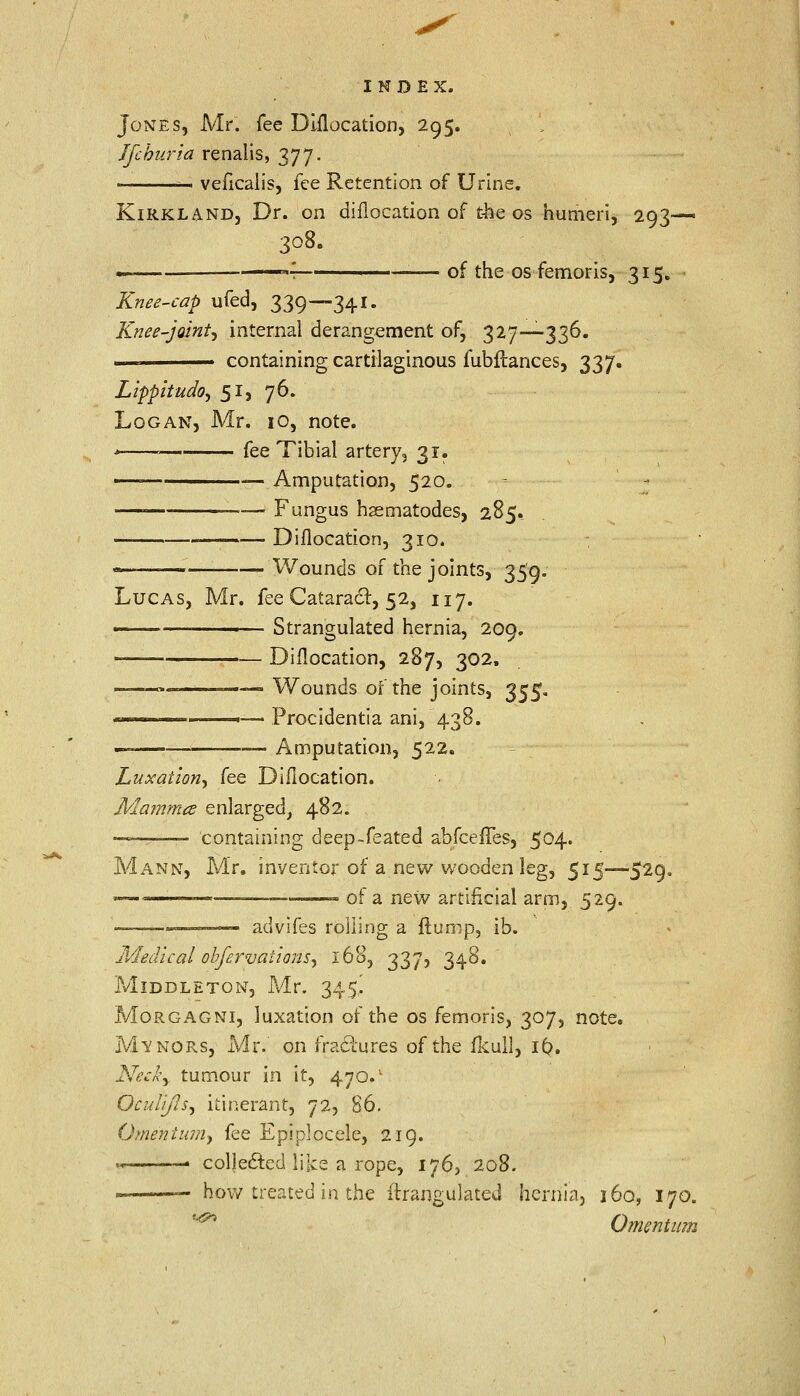 INDEX.
JONES, Mr. ſee Diſlocation, 295.
Iſchuria renalis, 377.
——— veſicalis, ſee Retention of Urine.
KIRKLAND, Dr. on diſlocation of the os humeri, 293—
308.
——— of the os femoris, 315.
Knee-cap uſed, 339—341.
Knee-joint, internal derangement of, 327—336.
——— containing cartilaginous ſubſtances, 337.
Lippitudo, 51, 76.
LOGAN, Mr. 10, note.
——— ſee Tibial artery, 31.
——— Amputation, 520.
——— Fungus hæmatodes, 285.
——— Diſlocation, 310.
——— Wounds of the joints, 359.
LUCAS, Mr. ſee Cataract, 52, 117.
——— Strangulated hernia, 209.
——— Diſlocation, 287, 302.
——— Wounds of the joints, 355.
——— Procidentia ani, 438.
——— Amputation, 522.
Luxation, ſee Diſlocation.
Mammæ enlarged, 482.
——— containing deep-ſeated abſceſſes, 504.
MANN, Mr. inventor of a new wooden leg, 515—529.
——— of a new artificial arm, 529.
——— adviſes rolling a ſtump, ib.
Medical obſervations, 168, 337, 348.
MIDDLETON, Mr. 345.
MORGAGNI, luxation of the os femoris, 307, note.
MYNORS, Mr. on fractures of the ſkull, 16.
Neck, tumour in it, 470.
Oculiſts, itinerant, 72, 86.
Omentum, ſee Epiplocele, 219.
——— collected like a rope, 176, 208.
——— how treated in the ſtrangulated hernia, 160, 170.
Omentum